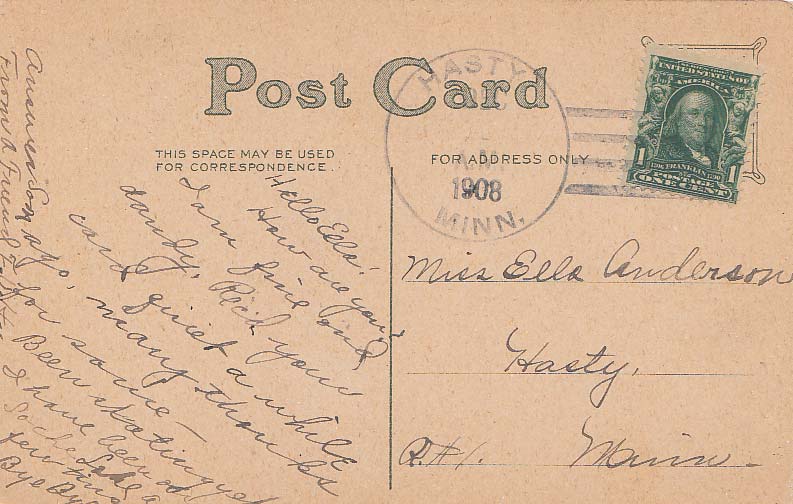 Post Card
THIS SPACE MAY BE USED
FOR CORRESPONDENCE.
FOR ADDRESS ONLY
HASTY
A.M.
1908
MINN.
UNITED STATES OF
AMERICA
FRANKLIN
POSTAGE
1 ONE CENT 1
Hello Ella!
How are you?
I am fine and
dandy. Rec'd your
card quiet a while
ago, many thanks
for same—
Been skating yet
I have been a
few times
Bye Bye
Answer Soon
From a Friend
Miss Ella Anderson
Hasty,
R.#1. Minn.